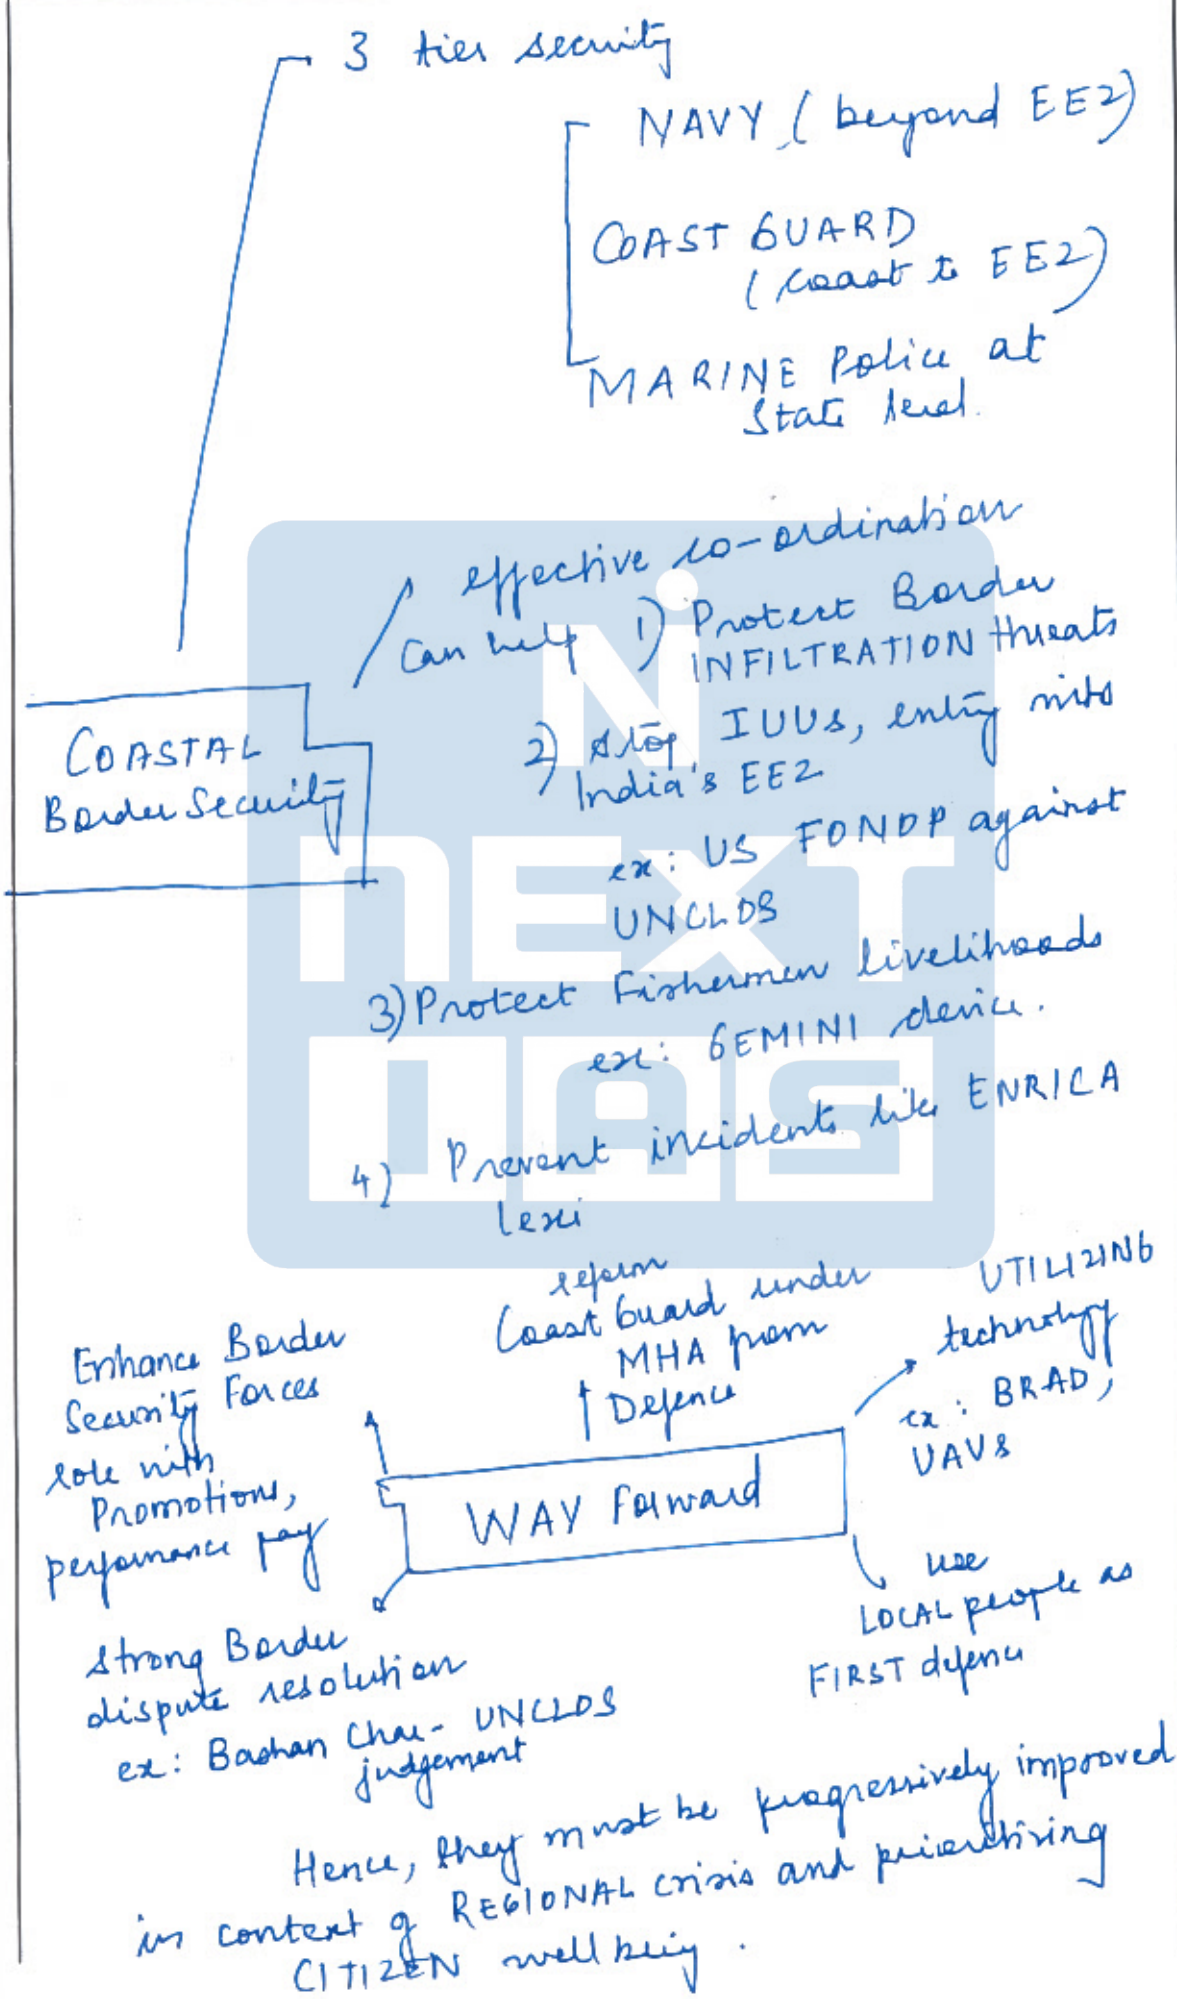 3 tier security
NAVY (beyond EEZ)
COAST GUARD
(coast to EEZ)
MARINE Police at
State level.
effective co-ordination
Can help 1) Protect Border
INFILTRATION threats
2) stop IUUs, entry into
India's EEZ
ex: US FONOP against
UNCLOS
3) Protect Fishermen livelihoods
ex: GEMINI device.
4) Prevent incidents like ENRICA
lexi
COASTAL
Border Security
NEXT
IAS
Enhance Border
Security Forces
role with
Promotions,
performance pay
reform
Coast Guard under
MHA from
Defence
UTILIZING
technology
ex: BRAD,
UAVs
WAY Forward
use
LOCAL people as
FIRST defence
Strong Border
dispute resolution
ex: Bashan Char- UNCLOS
judgement
Hence, they must be progressively improved
in context of REGIONAL crisis and prioritising
CITIZEN well being.